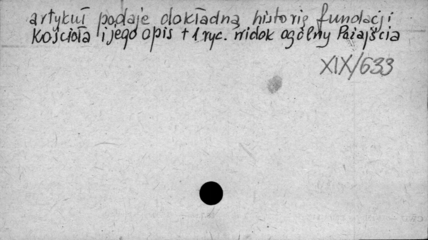 artykuł podaje dokładną historię fundacji
Kościoła i jego opis + 1 ryc. widok ogólny Pażajścia
XIX/633